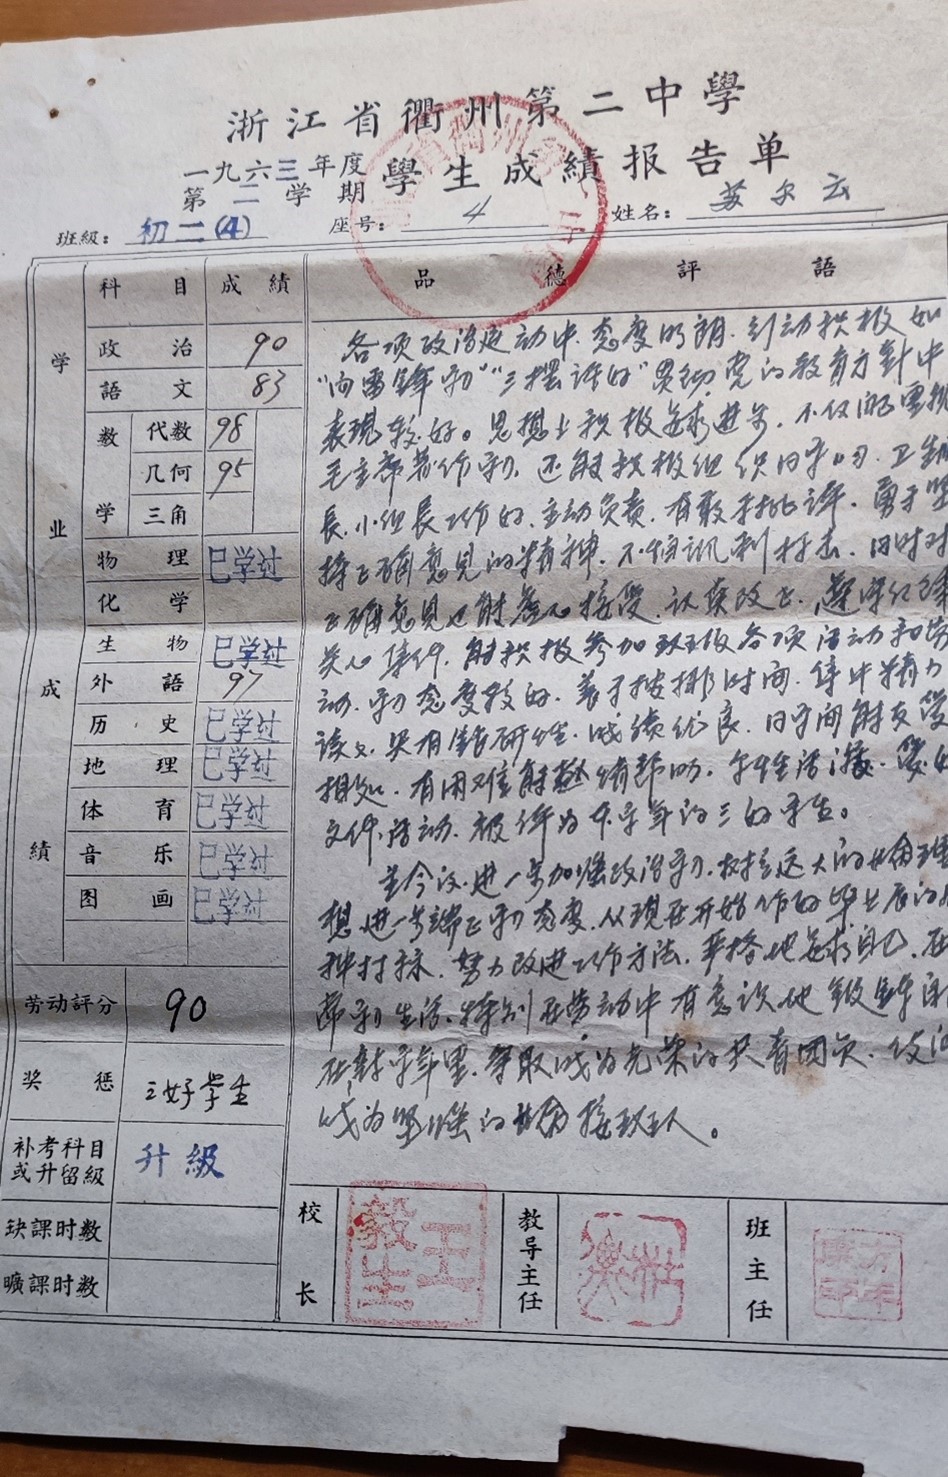 浙江省衢州第二中學
一九六三年度
第二学期
學生成績报告单
班級：初二(4) 座号：4 姓名：苏尔云
学业成績
科目 成績 品德評語
政治 90
語文 83
数学 代数 98
几何 95
三角
物理 已学过
化学
生物 已学过
外語 97
历史 已学过
地理 已学过
体育 已学过
音乐 已学过
图画 已学过
劳动評分 90
奖惩 三好学生
补考科目或升留級 升級
玦課时数
曠課时数
各项政治运动中，态度明朗，行动积极，如
"向雷锋学习""三摆评好"贯彻党的教育方針中
表現较好。思想上积极要求进步，不仅
毛主席著作学习，还能积极组织同学
長、小组長工作好，主动负责，有敢于批评，勇于坚
持正确意見的精神，不怕讽刺打击，同时对
正确意見也能虚心接受，认真改正
关心集体，能积极参加班级各项活动和劳
动，学习态度较好，善于按排时间，集中精力
成绩优良，同学间能友爱
相处，有困难能热情帮助，个性活泼，爱好
文体活动，被评为本学年的三好学生。
望今后进一步加强政治学习，树立远大的革命理
想，进一步端正学习态度，从現在开始作好毕业后的
种打标，努力改进工作方法，严格地要求自己，在
学习生活，特别在劳动中有意识地锻鍊自
在新学年里，争取成为光荣的共青团员
成为坚强的革命接班人。
校长 王教生
教导主任
班主任